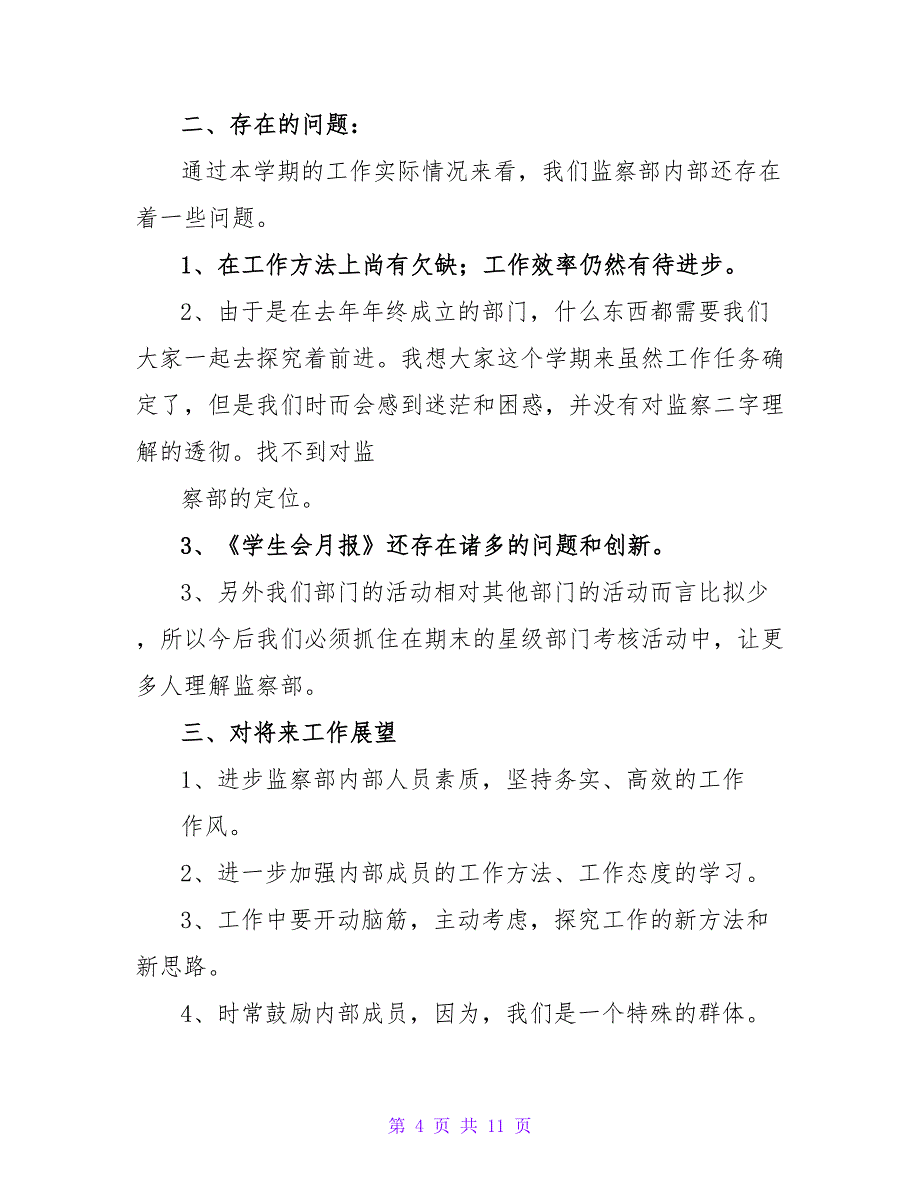 二、存在的问题：
通过本学期的工作实际情况来看，我们监察部内部还存在
着一些问题。
1、在工作方法上尚有欠缺；工作效率仍然有待进步。
2、由于是在去年年终成立的部门，什么东西都需要我们
大家一起去探究着前进。我想大家这个学期来虽然工作任务确
定了，但是我们时而会感到迷茫和困惑，并没有对监察二字理
解的透彻。找不到对监
察部的定位。
3、《学生会月报》还存在诸多的问题和创新。
3、另外我们部门的活动相对其他部门的活动而言比拟少
，所以今后我们必须抓住在期末的星级部门考核活动中，让更
多人理解监察部。
三、对将来工作展望
1、进步监察部内部人员素质，坚持务实、高效的工作
作风。
2、进一步加强内部成员的工作方法、工作态度的学习。
3、工作中要开动脑筋，主动考虑，探究工作的新方法和
新思路。
4、时常鼓励内部成员，因为，我们是一个特殊的群体。
第 4 页 共 11 页